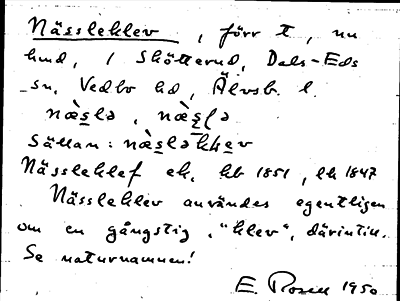 Nässleklev, förr t, nu
hmd, i Skötterud, Dals-Eds
sn, Vedbo hd, Älvsb. l.
næ̀slə, næ̀slə
Sällan: næ̀sləkkev
Nässleklef ek, kb 1851, lk 1847
Nässleklev användes egentligen
om en gångstig, "klev", därintill.
Se naturnamnen!
E. Rosell 1950